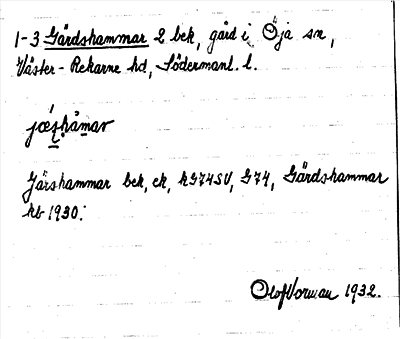 1-3 Gärdshammar 2 bek, gård i Öja sn,
Väster-Rekarne hd, Södermanl. l.
jǽʂhàmar
Järshammar bek, ek, kG74SV, G74, Gärdshammar
kb 1930.
Olof Vorman 1932.